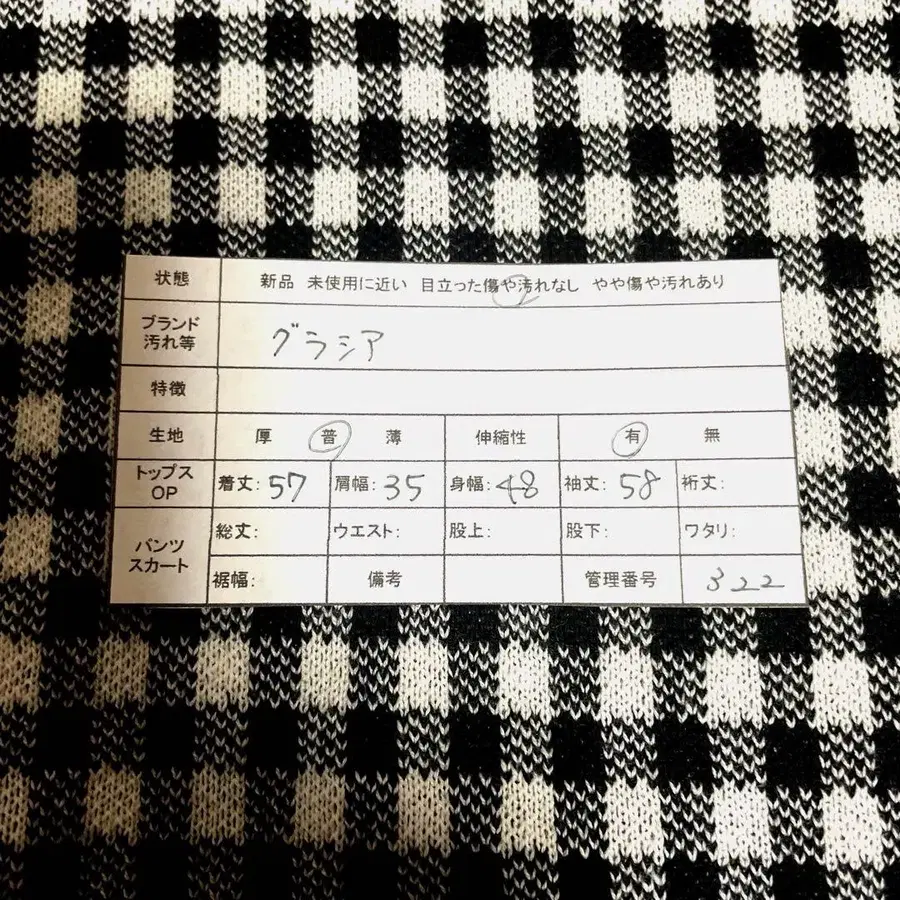 状態 新品 未使用に近い 目立った傷や汚れなし やや傷や汚れあり
ブランド
汚れ等
グラシア
特徴
生地 厚 普 薄 伸縮性 有 無
トップス
OP
着丈:57 肩幅:35 身幅:48 袖丈:58 裄丈:
パンツ
スカート
総丈: ウエスト: 股上: 股下: ワタリ:
裾幅: 備考 管理番号 322